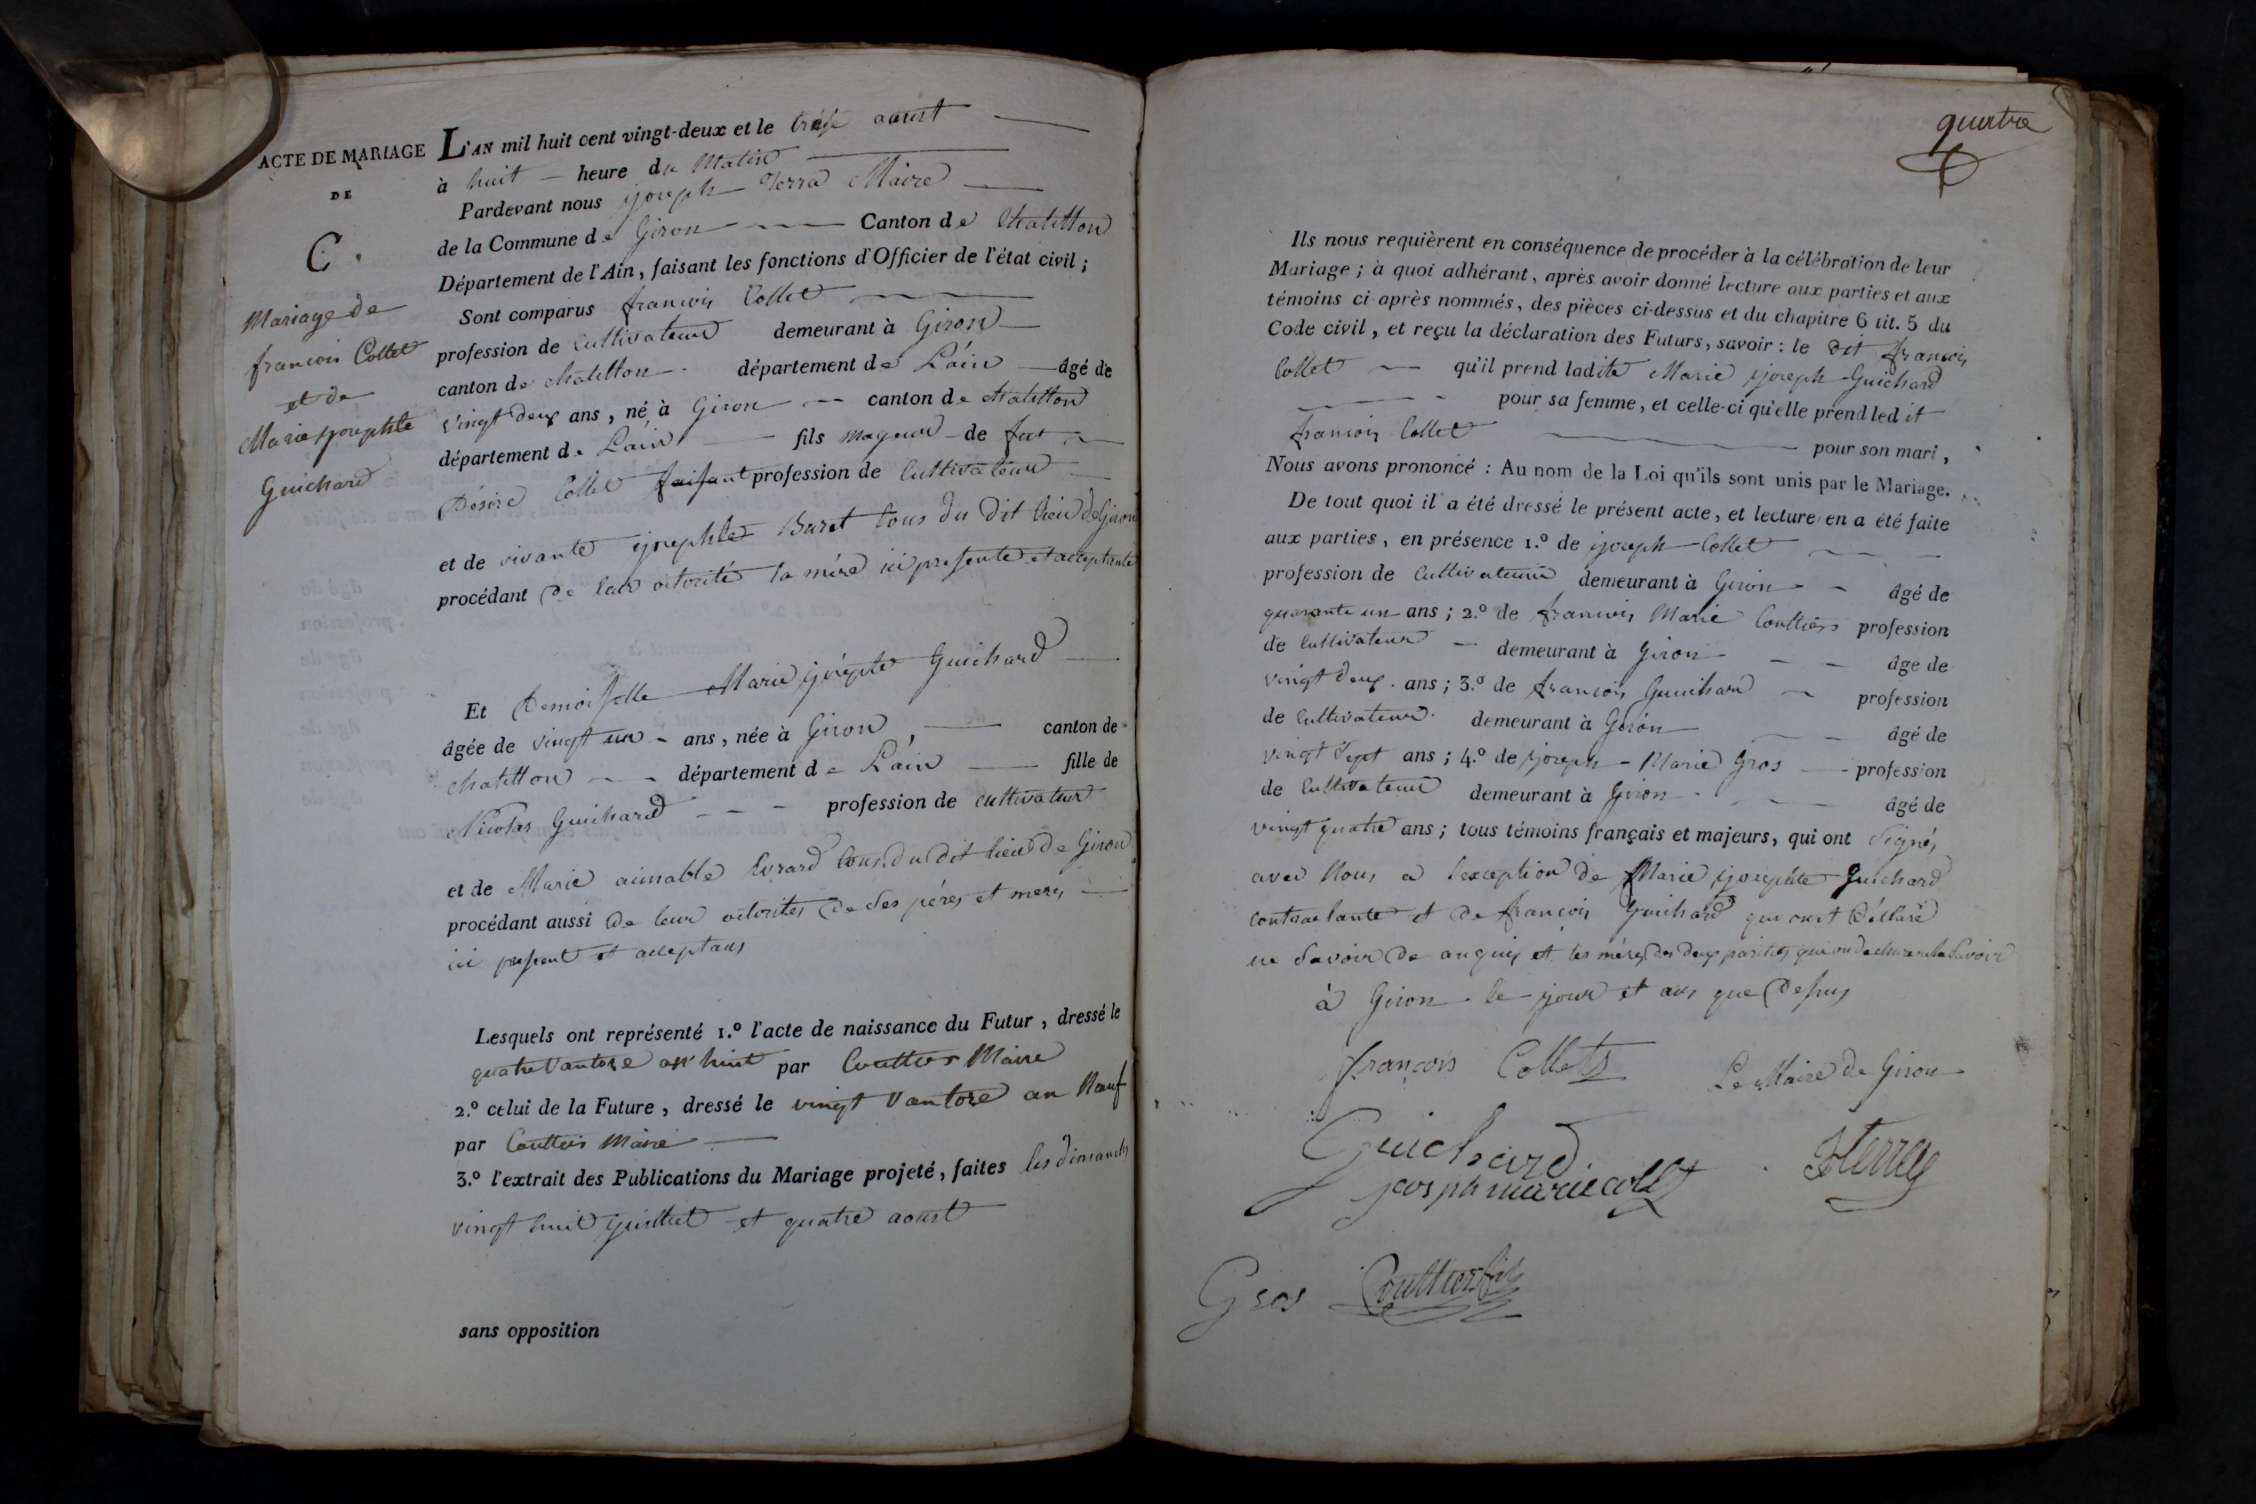 ACTE DE MARIAGE
DE
C.
Mariage de
francois Collet
et de
Marie josephte
Guichard
L'AN mil huit cent vingt-deux et le treise aoust
à huit heure du Matin
Pardevant nous joseph Terra Maire
de la Commune de Giron Canton de Chatillon
Département de l'Ain, faisant les fonctions d'Officier de l'état civil;
Sont comparus francois Collet
profession de Cultivateur demeurant à Giron
canton de chatillon département de L'ain âgé de
vingt deux ans, né à Giron canton de chatillon
département de L'ain fils mageur de fut
Désiré Collet faisant profession de Cultivateur
et de vivante josephte Buret tous du dit lieu de Giron
procédant de lautorité sa mère ici presente et acceptante
Et Demoiselle Marie josephte Guichard
âgée de vingt un ans, née à Giron, canton de
chatillon département de L'ain fille de
Nicolas Guichard profession de cultivateur
et de Marie aimable Evrard tous du dit lieu de Giron
procédant aussi de leur otorités de ses péres et meres
ici present et acceptans
Lesquels ont représenté 1.º l'acte de naissance du Futur, dressé le
quatre Vantose an huit par Couttier Maire
2.º celui de la Future, dressé le vingt Vantose an Neuf
par Couttier Maire
3.º l'extrait des Publications du Mariage projeté, faites les dimanches
vingt huit juillet et quatre aoust
sans opposition
quatre
Ils nous requièrent en conséquence de procéder à la célébration de leur
Mariage; à quoi adhérant, après avoir donné lecture aux parties et aux
témoins ci après nommés, des pièces ci-dessus et du chapitre 6 tit. 5 du
Code civil, et reçu la déclaration des Futurs, savoir: le dit francois
Collet qu'il prend ladite Marie joseph Guichard
pour sa femme, et celle-ci qu'elle prend ledit
francois Collet pour son mari,
Nous avons prononcé: Au nom de la Loi qu'ils sont unis par le Mariage.
De tout quoi il a été dressé le présent acte, et lecture en a été faite
aux parties, en présence 1.º de joseph Collet
profession de Cultivateur demeurant à Giron âgé de
quarante un ans; 2.º de francois Marie Couttier profession
de Cultivateur demeurant à Giron âge de
vingt deux ans; 3.º de francois Guichard profession
de Cultivateur demeurant à Giron âgé de
vingt Sept ans; 4.º de joseph Marie Gros profession
de Cultivateur demeurant à Giron âgé de
vingt quatre ans; tous témoins français et majeurs, qui ont Signés
avec Nous a lexception de Marie josephte Guichard
contractante et de francois Guichard qui ont Déllaré
ne Savoir de anquis et les mères des deux parties
à Giron le jour et ans que Desus
françois Collet
Le Maire de Giron
Guichard
JTerra
joseph marie collet
Gros
Couttier fils